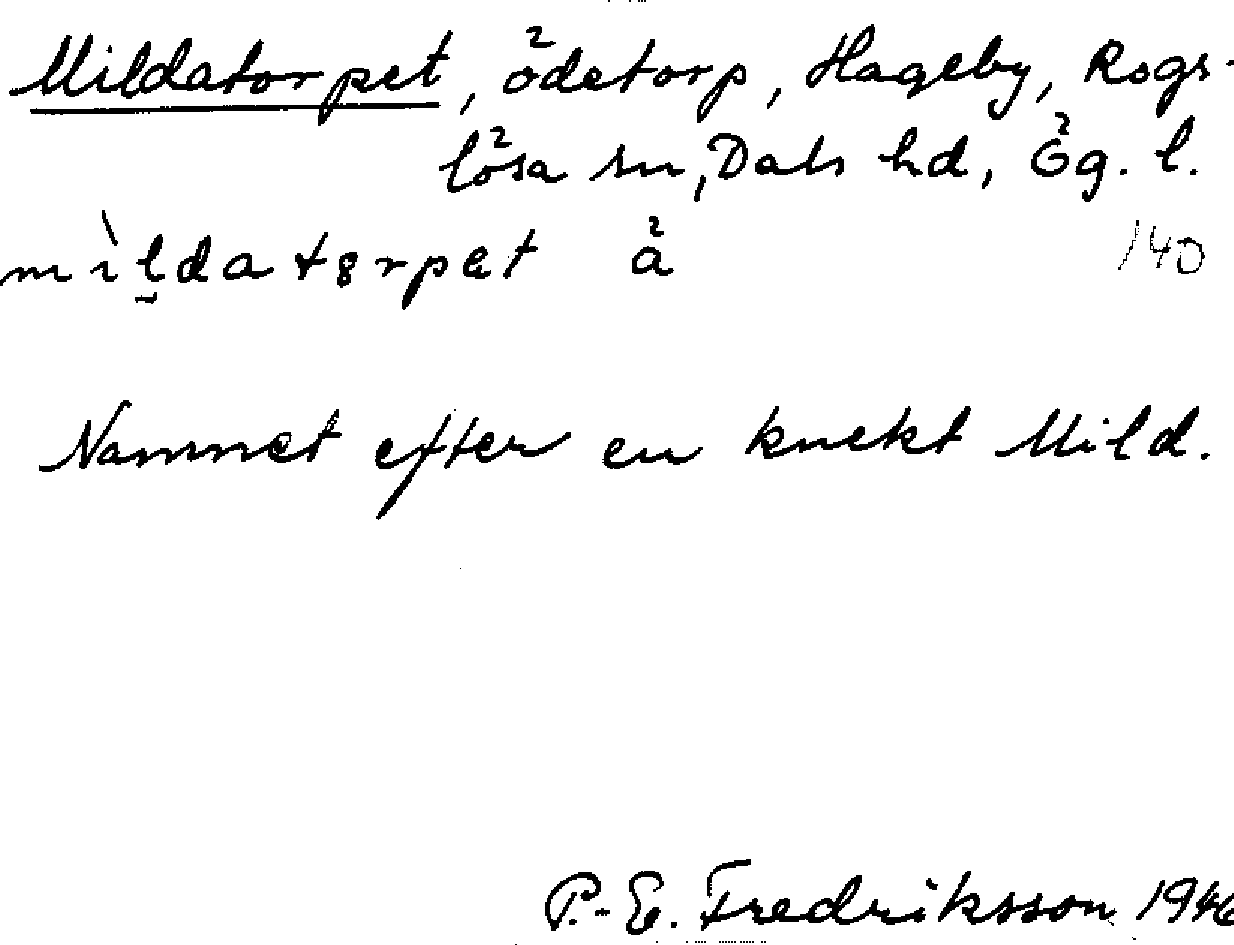 Mildatorpet, ödetorp, Hageby, Rogs-
lösa sn, Dals hd, Ög. l.
mìl̰datȣrpet å 140
Namnet efter en knekt Mild.
P.-E. Fredriksson 1946